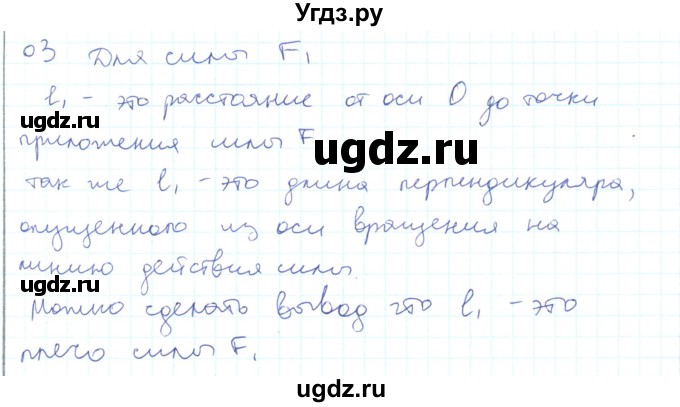 Угдз.ру
03 Для силы F₁
l₁ - это расстояние от оси О до точки
приложения силы F
так же l₁ - это длина перпендикуляра,
опущенного из оси вращения на
линию действия силы.
Можно сделать вывод что l₁ - это
плечо силы F₁
ugdz.ru
ugdz.ru
ugdz.ru
ugdz.ru